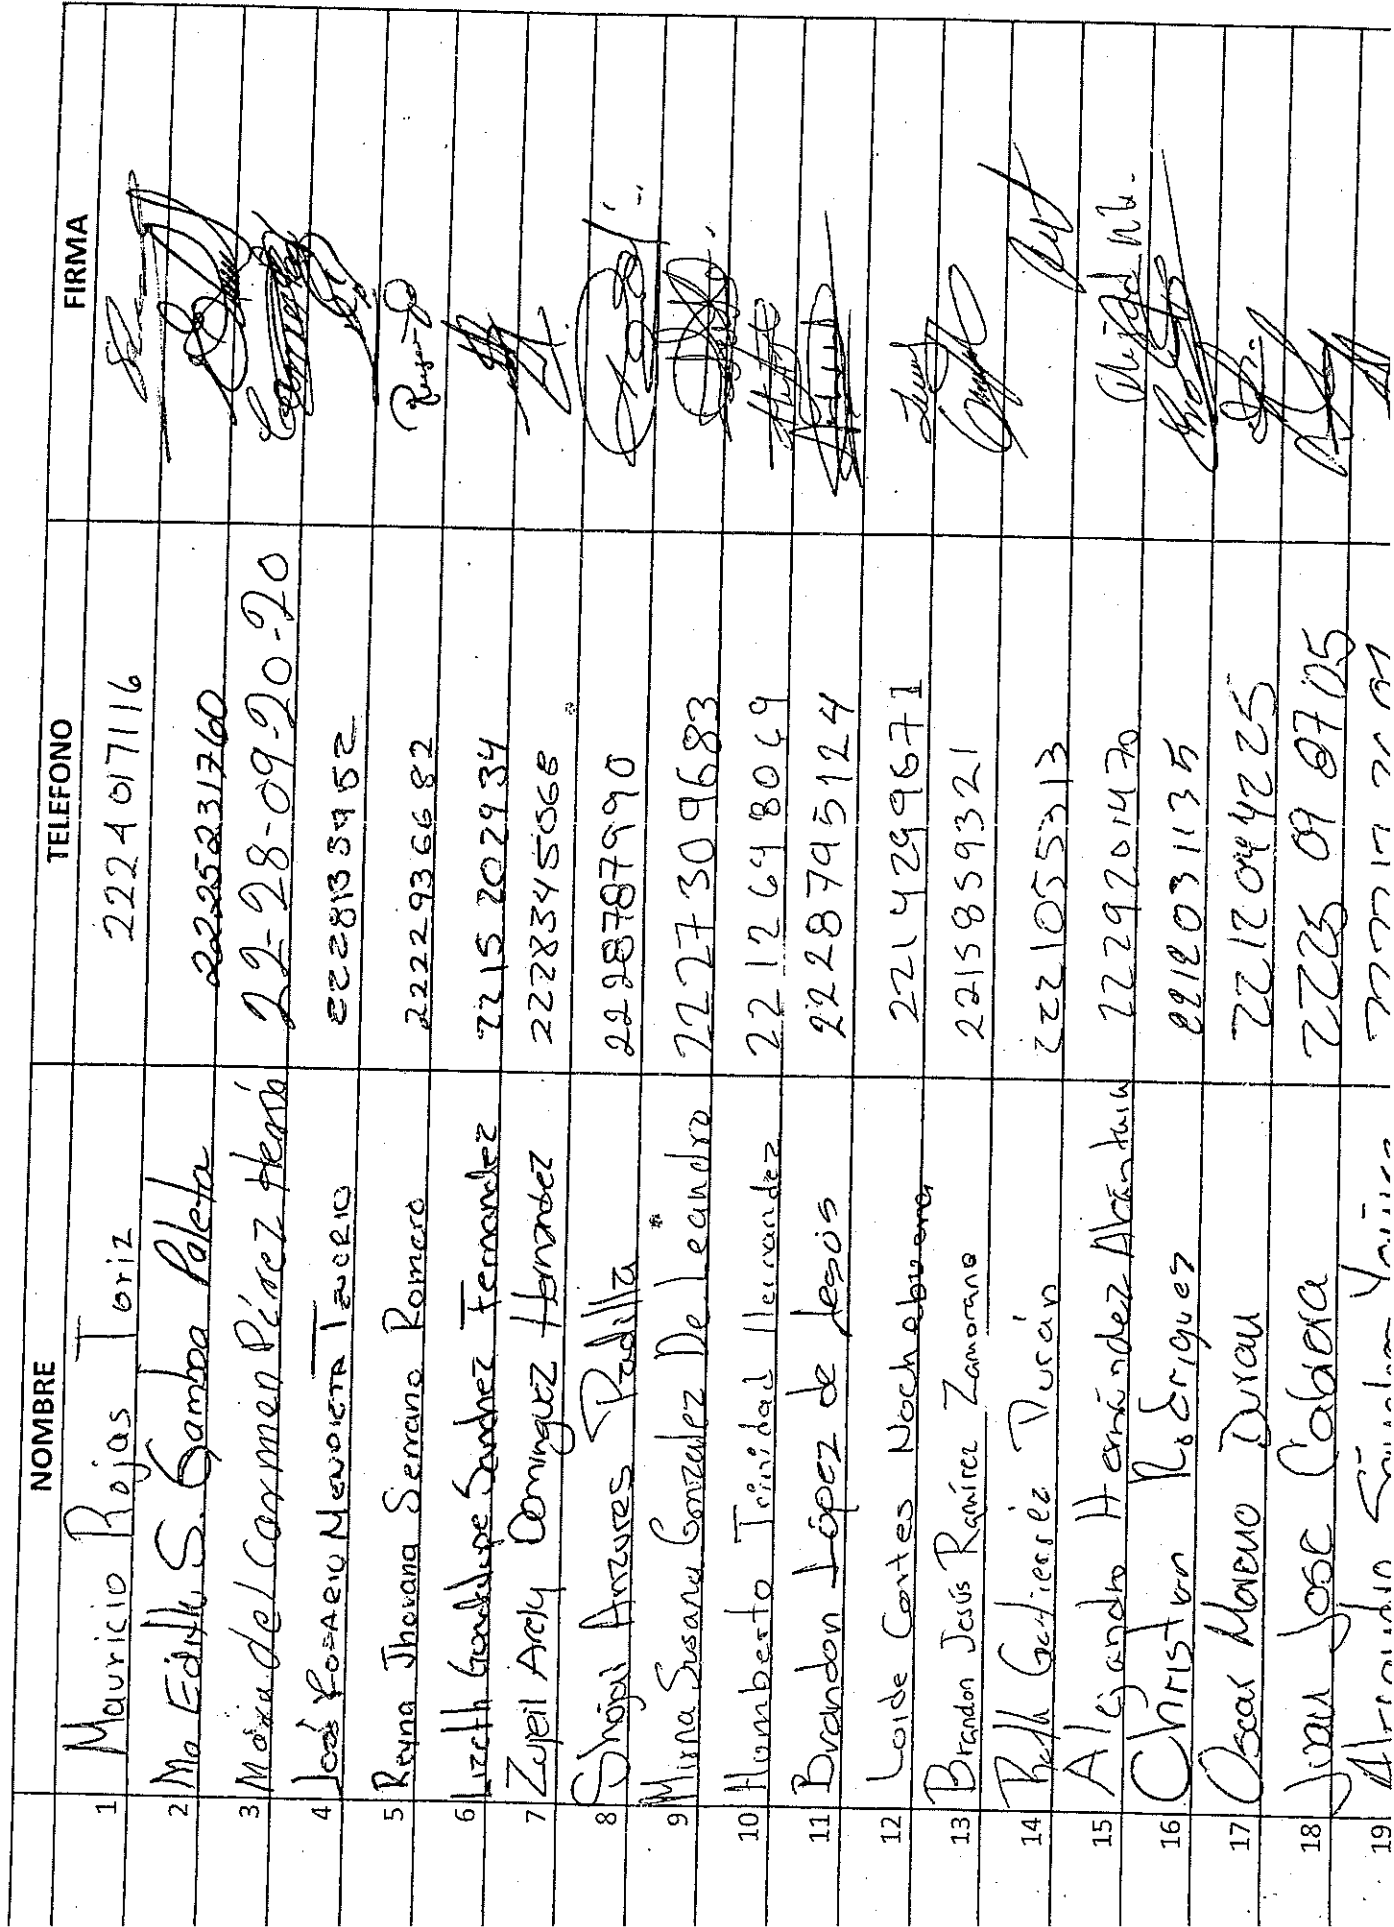 NOMBRE TELEFONO FIRMA
1 Mauricio Rojas Toriz 2224017116
2 Ma Edith S. Gamboa Paleta 2225231760
3 María del Carmen Pérez Herná 22-28-09-20-20
4 José Rosario Mendieta Tenorio 2228139952
5 Reyna Jhovana Serrano Romero 2222936682
6 Lizeth Guadalupe Sanchez Fernandez 2215202934
7 Zujeil Arely Dominguez Hernandez 2228345068
8 Anzures Padilla 2228787990
9 Mirna Susana Gonzalez De Leandro 2227309683
10 Humberto Trinidad Hernandez 2212698069
11 Brandon López de Jesús 2228795124
12 Loide Cortes Nochebuena 2214299671
13 Brandon Jesús Ramírez Zamorano 2215859321
14 Ruth Gutierrez Durán 2221055313
15 Alejandro Hernández Alcántara 2229201470
16 Christian Rodriguez 2212031135
17 Oscar Moreno Duran 2212044225
18 Juan Jose Cabrera 2225 09 8705
19